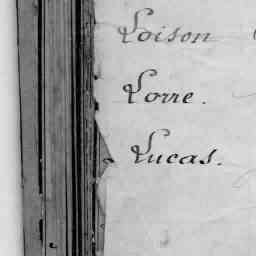 Loison
Lorre.
Lucas.